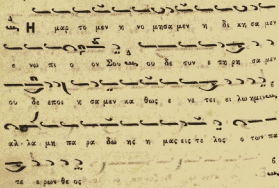 Η μαρ το μεν η νο μησα μεν η δι κησα μεν
ε νω πι ο ον Σου ου δε συ νε τη ρη σα μεν
ου δε εποι η σα μεν κα θως ε νε τει λω
αλ λα μη πα ρα δω ης η μας εις τε λος ο των πα
τε ε ρων θε ος